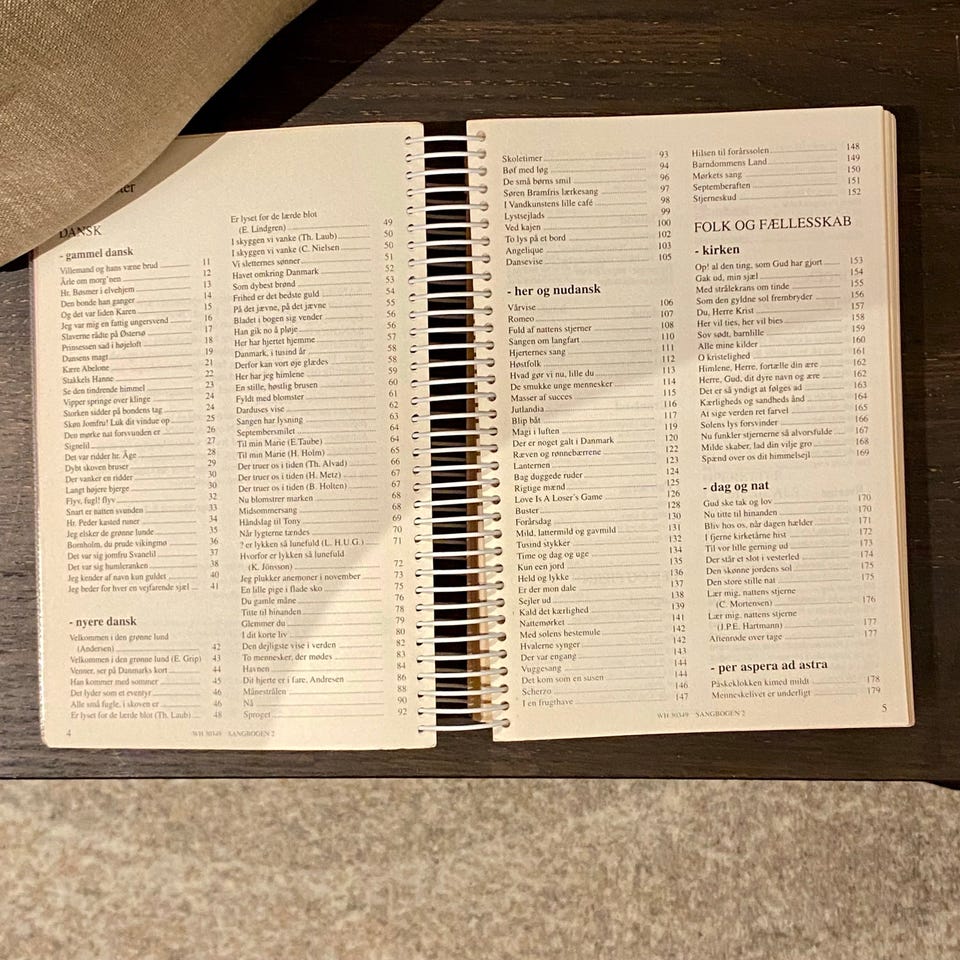 DANSK
- gammel dansk
Villemand og hans væne brud 11
Årle om morg'nen 12
Hr. Bøsmer i elvehjem 13
Den bonde han ganger 14
Og det var liden Karen 15
Jeg var mig en fattig ungersvend 16
Slaverne rådte på Østersø 17
Prinsessen sad i højeloft 18
Dansens magt 19
Kære Abelone 21
Stakkels Hanne 22
Se den tindrende himmel 23
Vipper springe over klinge 24
Storken sidder på bondens tag 24
Skøn Jomfru! Luk dit vindue op 25
Den mørke nat forsvunden er 26
Signelil 27
Det var ridder hr. Åge 28
Dybt skoven bruser 29
Der vanker en ridder 30
Langt højere bjerge 30
Flyv, fugl! flyv 32
Snart er natten svunden 33
Hr. Peder kasted runer 34
Jeg elsker de grønne lunde 35
Bornholm, du prude vikingmø 36
Det var sig jomfru Svanelil 37
Det var sig humleranken 38
Jeg kender af navn kun guldet 40
Jeg beder for hver en vejfarende sjæl 41
- nyere dansk
Velkommen i den grønne lund
(Andersen) 42
Velkommen i den grønne lund (E. Grip) 43
Venner, ser på Danmarks kort 44
Han kommer med sommer 45
Det lyder som et eventyr 46
Alle små fugle, i skoven er 46
Er lyset for de lærde blot (Th. Laub) 48
Er lyset for de lærde blot
(E. Lindgren) 49
I skyggen vi vanke (Th. Laub) 50
I skyggen vi vanke (C. Nielsen 50
Vi sletternes sønner 51
Havet omkring Danmark 52
Som dybest brønd 53
Frihed er det bedste guld 54
På det jævne, på det jævne 55
Bladet i bogen sig vender 56
Han gik no å pløje 56
Her har hjertet hjemme 57
Danmark, i tusind år 58
Derfor kan vort øje glædes 58
Her har jeg himlene 59
En stille, høstlig brusen 60
Fyldt med blomster 61
Darduses vise 62
Sangen har lysning 63
Septembersmilet 64
Til min Marie (E.Taube) 64
Til min Marie (H. Holm) 65
Der truer os i tiden (Th. Alvad) 66
Der truer os i tiden (H. Metz) 67
Der truer os i tiden (B. Holten) 67
Nu blomstrer marken 68
Midsommersang 68
Håndslag til Tony 69
Når lygterne tændes 70
? er lykken så lunefuld (L. H.U.G.) 71
Hvorfor er lykken så lunefuld
(K. Jönsson) 72
Jeg plukker anemoner i november 73
En lille pige i flade sko 75
Du gamle måne 76
Titte til hinanden 78
Glemmer du 79
I dit korte liv 80
Den dejligste vise i verden 82
To mennesker, der mødes 83
Havnen 84
Dit hjerte er i fare, Andresen 86
Månestrålen 88
Nå 90
Sproget 92
4 WH 30349 SANGBOGEN 2
Skoletimer 93
Bøf med løg 94
De små børns smil 96
Søren Bramfris lærkesang 97
I Vandkunstens lille café 98
Lystsejlads 99
Ved kajen 100
To lys på et bord 102
Angelique 103
Dansevise 105
- her og nudansk
Vårvise 106
Romeo 107
Fuld af nattens stjerner 108
Sangen om langfart 110
Hjerternes sang 111
Høstfolk 112
Hvad gør vi nu, lille du 113
De smukke unge mennesker 114
Masser af succes 115
Jutlandia 116
Blip båt 117
Magi i luften 119
Der er noget galt i Danmark 120
Ræven og rønnebærrene 122
Lanternen 123
Bag duggede ruder 124
Rigtige mænd 125
Love Is A Loser's Game 126
Buster 128
Forårsdag 130
Mild, lattermild og gavmild 131
Tusind stykker 132
Time og dag og uge 134
Kun een jord 135
Held og lykke 136
Er der mon dale 137
Sejler ud 138
Kald det kærlighed 139
Nattemørket 141
Med solens hestemule 142
Hvalerne synger 142
Der var engang 143
Vuggesang 144
Det kom som en susen 144
Scherzo 146
I en frugthave 147
Hilsen til forårssolen 148
Barndommens Land 149
Mørkets sang 150
Septemberaften 151
Stjerneskud 152
FOLK OG FÆLLESSKAB
- kirken
Op! al den ting, som Gud har gjort 153
Gak ud, min sjæl 154
Med strålekrans om tinde 155
Som den gyldne sol frembryder 156
Du, Herre Krist 157
Her vil ties, her vil bies 158
Sov sødt, barnlille 159
Alle mine kilder 160
O kristelighed 161
Himlene, Herre, fortælle din ære 162
Herre, Gud, dit dyre navn og ære 162
Det er så yndigt at følges ad 163
Kærligheds og sandheds ånd 164
At sige verden ret farvel 165
Solens lys forsvinder 166
Nu funkler stjernerne så alvorsfulde 167
Milde skaber, lad din vilje gro 168
Spænd over os dit himmelsejl 169
- dag og nat
Gud ske tak og lov 170
Nu titte til hinanden 170
Bliv hos os, når dagen hælder 171
I fjerne kirketårne hist 172
Til vor lille gerning ud 173
Der står et slot i vesterled 174
Den skønne jordens sol 175
Den store stille nat 175
Lær mig, nattens stjerne
(C. Mortensen) 176
Lær mig, nattens stjerne
(J.P.E. Hartmann) 177
Aftenrøde over tage 177
- per aspera ad astra
Påskeklokken kimed mildt 178
Menneskelivet er underligt 179
WH 30349 SANGBOGEN 2 5